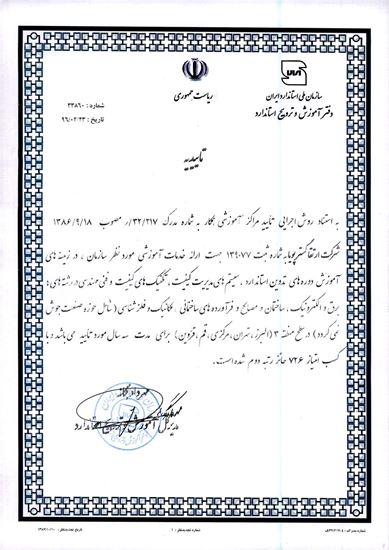 ریاست جمهوری
سازمان ملی استاندارد ایران
دفتر آموزش و ترویج استاندارد
شماره : ۲۳۸۶۰
تاریخ : ۹۶/۰۲/۲۳
تاییدیه
به استناد روش اجرایی تایید مراکز آموزشی همکار به شماره مدرک ۳۲/۲۱۷/ر مصوب ۱۳۸۶/۹/۱۸
شرکت ارتقا گستر پویا به شماره ثبت ۱۳۹۰۷۷ جهت ارائه خدمات آموزشی مورد نظر سازمان ، در زمینه های
آموزش دوره های تدوین استاندارد ، سیستم های مدیریت کیفیت ، تکنیک های کیفیت و فنی مهندسی در رشته های :
برق و الکترونیک ، ساختمان و مصالح و فرآورده های ساختمانی ، مکانیک و فلزشناسی ( شامل حوزه صنعت جوش
نمی گردد ) در سطح منطقه ۳ ( البرز ، تهران ، مرکزی ، قم ، قزوین ) برای مدت سه سال مورد تایید می باشد و با
کسب امتیاز ۷۲۶ حائز رتبه دوم شده است.
مدیرکل دفتر آموزش و ترویج استاندارد
شماره تجدیدنظر : ۱